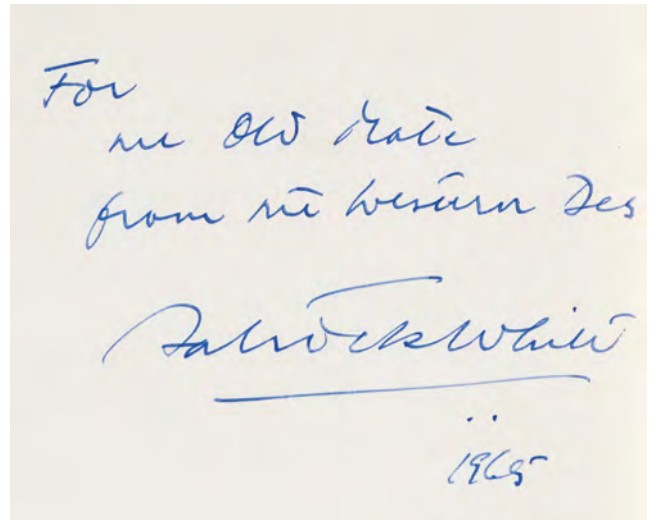 For
Old Mate
from the Western Des
Patrick White
1965